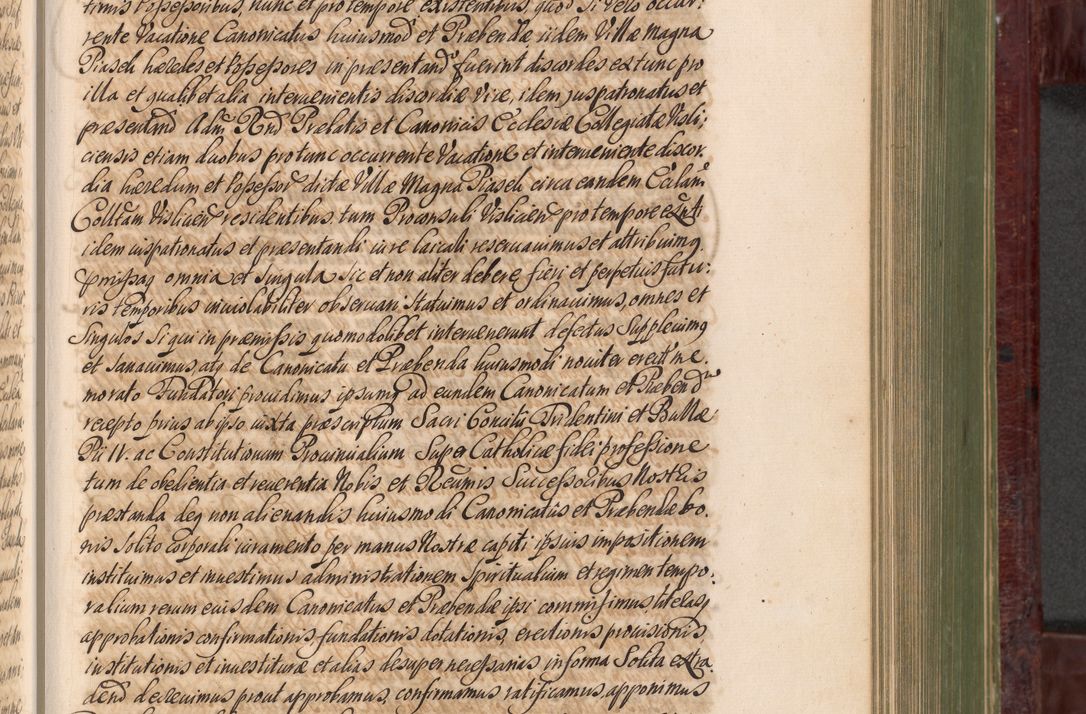 timis Possessoribus, nunc et pro tempore existentibus, quod si vero occur:
rente Vacatione Canonicatus huiusmodi et Præbendæ iidem Villæ magna
Piaseli hæredes et Possessores in præsentand fuerint discordes extunc pro
illa et qualibet alia intervenientis discordiæ vice, idem juspatronatus et
præsentand Adm Rnd Prælatis et Canonicis Ecclesiæ Collegiatæ Visli:
ciensis etiam duobus pro tunc occurrente Vacatione et interveniente discor
dia hæredum et Possessor dictæ Villæ Magna Piaseli circa eandem Ecclam
Colltam Vislicien residentibus, tum Proconsuli Vislicien pro tempore exnti
idem iuspatronatus et præsentandi iure laicali reservavimus et attribuimq
præmissaq omnia et singula sic et non aliter debere fieri et perpetuis futu:
ris temporibus inviolabiliter observari statuimus et ordinavimus, omnes et
Singulos si qui in præmissis quomodolibet intervenerunt defectus supplevimq
et sanavimus, atq de Canonicatu et Præbenda huiusmodi noviter erect me
morato Fundatori providimus ipsumq ad eundem Canonicatum et Præbend
recepto prius ab ipso iuxta præscriptum Sacri Concilii Tridentini et Bullæ
Pii IV. ac Constitutionum Provincialium super Catholicæ fidei professione
tum de obedientia et reverentia Nobis et Rcumis Successoribus Nostris
præstanda deq non alienandis huiusmodi Canonicatus et Præbendæ bo
nis solito corporali iuramento per manus Nostræ capiti ipsius impositionem
instituimus et investimus administrationem spiritualium et regimen tempo:
ralium rerum eiusdem Canonicatus et Præbendæ ipsi commisimus, literasq
approbationis confirmationis fundationis dotationis, erectionis provisionis,
institutionis et investituræ et alias desuper necessarias in forma solita extra
dend decrevimus prout approbamus, confirmamus ratificamus apponimus